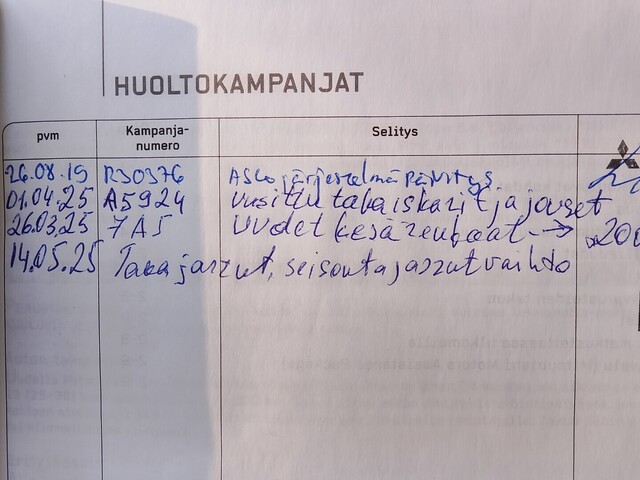 HUOLTOKAMPANJAT
pvm Kampanja-numero Selitys
26.08.19 R30376 järjestelmä Päivitys
01.04.25 A5924 Uusittu takaiskarit ja jouset
26.03.25 7A5 Uudet kesärenkaat →
14.05.25 Taka jarrut, seisontajarrut vaihto